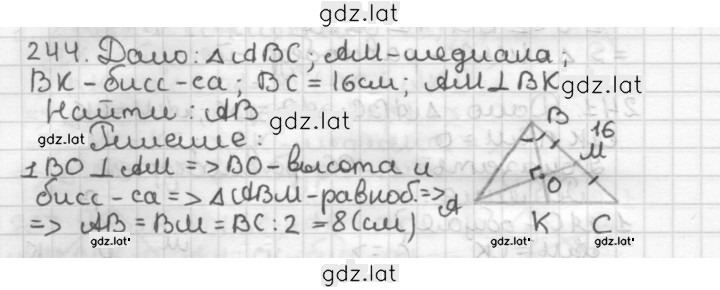 gdz.lat
244. Дано: △ABC; AM-медиана;
BK-бисс-са; BC=16см; AM⊥BK
Найти: AB
gdz.lat Решение:
1 BO⊥AM=>BO-высота и
бисс-са=>△ABM-равноб.=>
=> AB=BM=BC:2=8(см)
B
16
M
O
A
K C
gdz.lat gdz.lat gdz.lat
gdz.lat